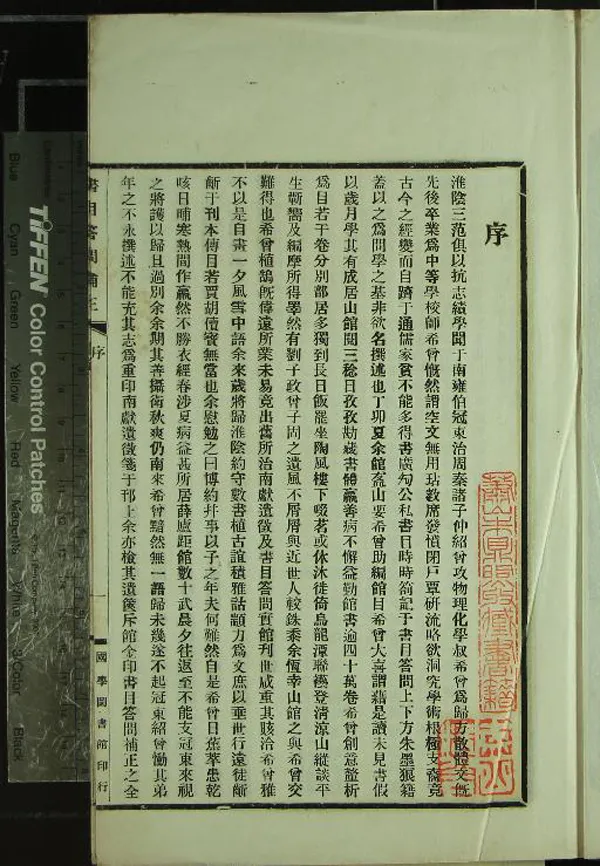 序
淮陰三范俱以抗志績學聞于南雍伯冠東治周秦諸子仲紹曾攻物理化學叔希曾爲歸方散體文旣
先後卒業爲中等學校師希曾慨然謂空文無用玷敎席發憤閉戶覃硏流略欲洞究學術根極支裔竟
古今之經變而自躋于通儒家貧不能多得書廣匄公私書日時時箚記于書目答問上下方朱墨狼籍
蓋以之爲問學之基非欲名撰述也丁卯夏余館盋山要希曾助編館目希曾大喜謂藉是讀未見書假
以歲月學其有成居山館閱三稔日孜孜勘藏書體羸善病不懈益勤館書逾四十萬卷希曾創意證析
爲目若干卷分別部居多獨到長日飯罷坐陶風樓下啜茗或休沐徙倚烏龍潭聯襼登淸涼山縱談平
生嚮及編摩所得睪然有劉子政曾子固之遺風不屑屑與近世人較銖黍余恆幸山館之與希曾交
難得也希曾植鵠旣偉遠所業未易竟出舊所治南獻遺徵及書目答問實館刊世咸重其賅洽希曾雅
不以是自畫一夕風雪中語余來歲將歸淮陰約守數書植古誼積雅詁顓力爲文庶以垂世行遠徒斷
斷于刊本傳目若賈胡儥寶無當也余慰勉之曰博約幷事以子之年夫何難然自是希曾日蕉萃患乾
咳日晡寒熱間作羸然不勝衣經春涉夏病益甚所居薛廬距館數十武晨夕往返至不能支冠東來視
之將護以歸且過別余余期其善攝衛秋爽仍南來希曾黯然無一語歸未幾遂不起冠東紹曾慟其弟
年之不永撰述不能充其志爲重印南獻遺徵箋于刊上余亦檢其遺篋斥館金印書目答問補正之全
書目答問補正
序
國學圖書館印行